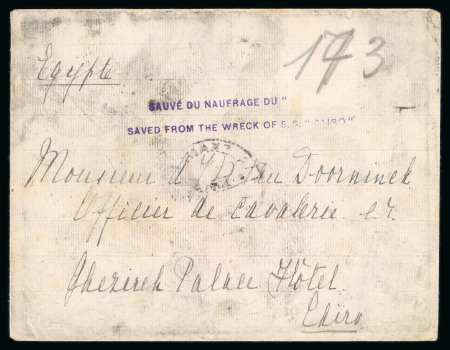 173
Egypte
SAUVÉ DU NAUFRAGE DU "
SAVED FROM THE WRECK OF S.S. "
Monsieur d Doorninck
Officier de Cavalerie
Ghezireh Palace Hôtel
Cairo